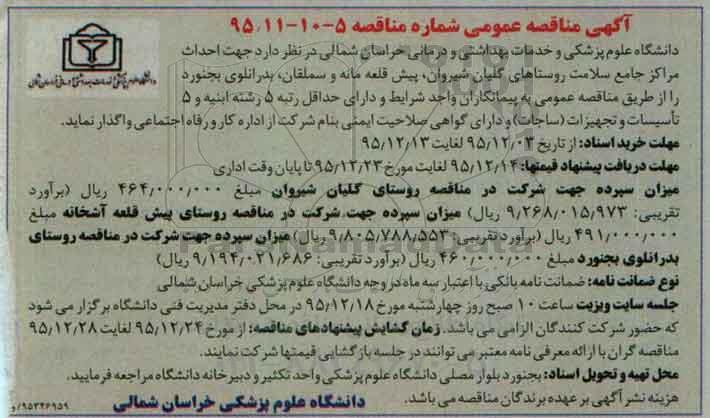 آگهی مناقصه عمومی شماره مناقصه ۵-۱۰-۹۵/۱۱
دانشگاه علوم پزشکی و خدمات بهداشتی و درمانی خراسان شمالی
دانشگاه علوم پزشکی و خدمات بهداشتی و درمانی خراسان شمالی در نظر دارد جهت احداث
مراکز جامع سلامت روستاهای گلیان شیروان، پیش قلعه مانه و سملقان، بدرانلوی بجنورد
را از طریق مناقصه عمومی به پیمانکاران واجد شرایط و دارای حداقل رتبه ۵ رشته ابنیه و ۵
تأسیسات و تجهیزات (ساجات) و دارای گواهی صلاحیت ایمنی بنام شرکت از اداره کار و رفاه اجتماعی واگذار نماید.
مهلت خرید اسناد: از تاریخ ۹۵/۱۲/۰۳ لغایت ۹۵/۱۲/۱۳
مهلت دریافت پیشنهاد قیمتها: ۹۵/۱۲/۱۴ لغایت مورخ ۹۵/۱۲/۲۳ تا پایان وقت اداری
میزان سپرده جهت شرکت در مناقصه روستای گلیان شیروان مبلغ ۴۶۴/۰۰۰/۰۰۰ ریال (برآورد
تقریبی: ۹/۲۶۸/۰۱۵/۹۷۳ ریال) میزان سپرده جهت شرکت در مناقصه روستای پیش قلعه آشخانه مبلغ
۴۹۱/۰۰۰/۰۰۰ ریال (برآورد تقریبی: ۹/۸۰۵/۷۸۸/۵۵۳ ریال) میزان سپرده جهت شرکت در مناقصه روستای
بدرانلوی بجنورد مبلغ ۴۶۰/۰۰۰/۰۰۰ ریال (برآورد تقریبی: ۹/۱۹۴/۰۲۱/۶۸۶ ریال)
نوع ضمانت نامه: ضمانت نامه بانکی با اعتبار سه ماه در وجه دانشگاه علوم پزشکی خراسان شمالی
جلسه سایت ویزیت ساعت ۱۰ صبح روز چهارشنبه مورخ ۹۵/۱۲/۱۸ در محل دفتر مدیریت فنی دانشگاه برگزار می شود
که حضور شرکت کنندگان الزامی می باشد. زمان گشایش پیشنهادهای مناقصه: از مورخ ۹۵/۱۲/۲۴ لغایت ۹۵/۱۲/۲۸
مناقصه گران با ارائه معرفی نامه معتبر می توانند در جلسه بازگشایی قیمتها شرکت نمایند.
محل تهیه و تحویل اسناد: بجنورد بلوار مصلی دانشگاه علوم پزشکی واحد تکثیر و دبیرخانه دانشگاه مراجعه فرمایید.
هزینه نشر آگهی بر عهده برندگان مناقصه می باشد.
دانشگاه علوم پزشکی خراسان شمالی
۹۵۳۴۶۹۵۹/و